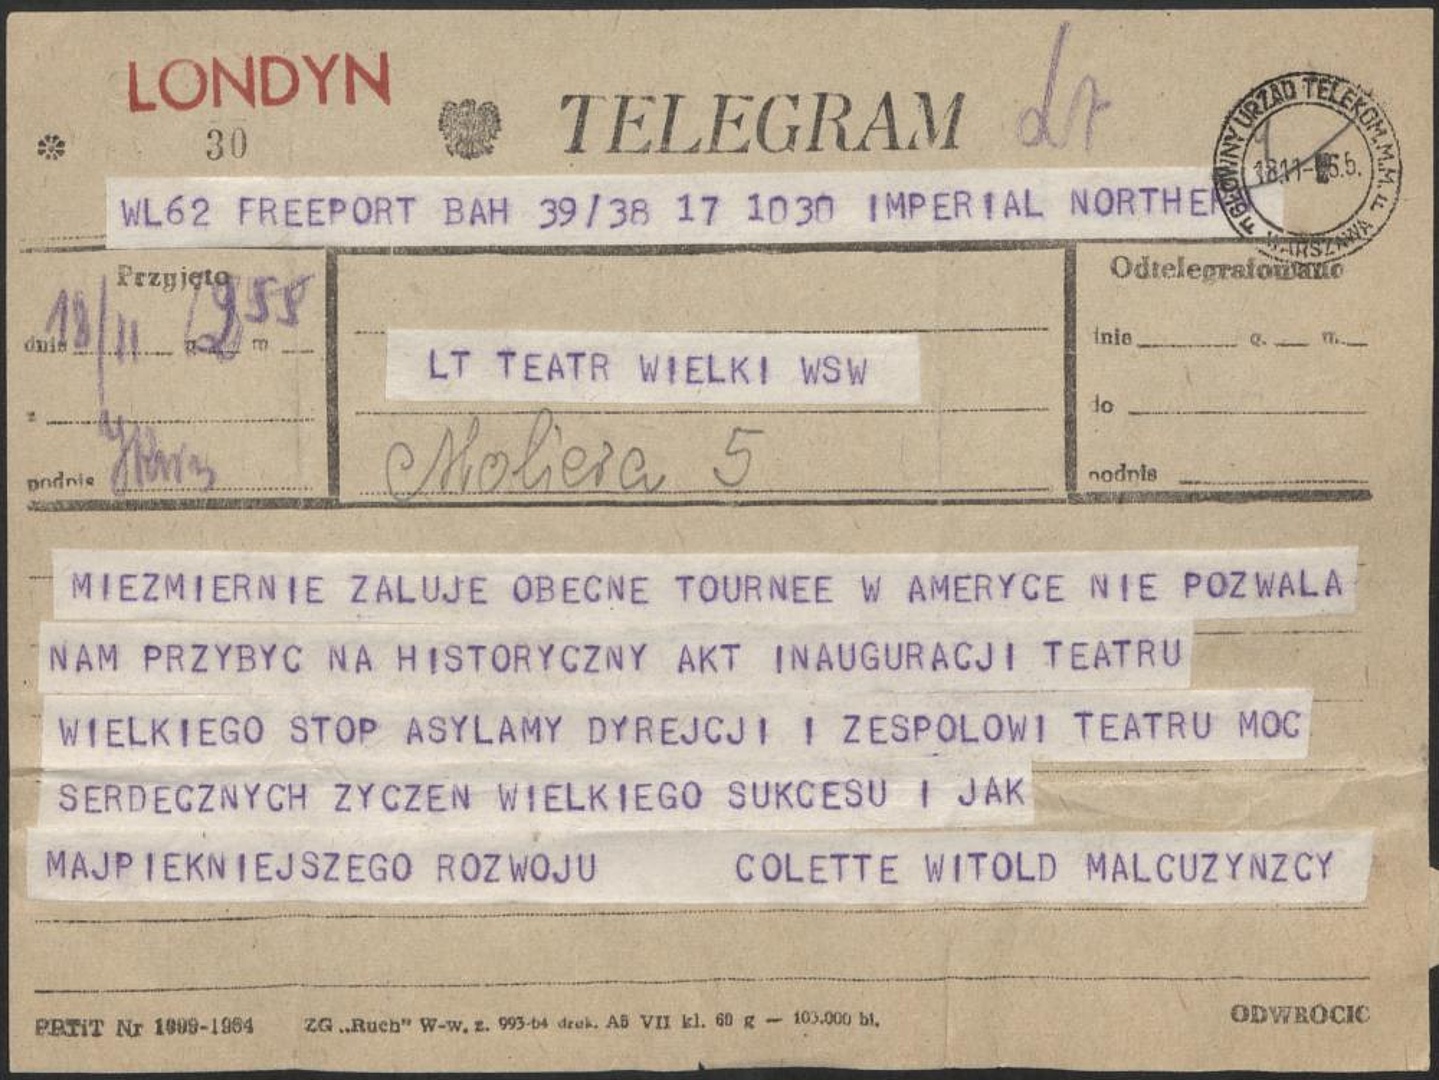 LONDYN
30
TELEGRAM
Lt
GŁÓWNY URZĄD TELEKOM. M.M.
18.11-65.
WARSZAWA
WL62 FREEPORT BAH 39/38 17 1030 IMPERIAL NORTHERN
Przyjęto
Odtelegrafowano
18/11 955
dnia g. m
dnia g. m.
LT TEATR WIELKI WSW
z
do
Moliera 5
podpis
podpis
MIEZMIERNIE ZALUJE OBECNE TOURNEE W AMERYCE NIE POZWALA
NAM PRZYBYC NA HISTORYCZNY AKT INAUGURACJI TEATRU
WIELKIEGO STOP ASYLAMY DYREJCJI I ZESPOLOWI TEATRU MOC
SERDECZNYCH ZYCZEN WIELKIEGO SUKCESU I JAK
MAJPIEKNIEJSZEGO ROZWOJU COLETTE WITOLD MALCUZYNZCY
PPTiT Nr 1009-1964 ZG „Ruch" W-w. z. 993-64 druk. A5 VII kl. 60 g — 103.000 bl.
ODWRÓCIĆ